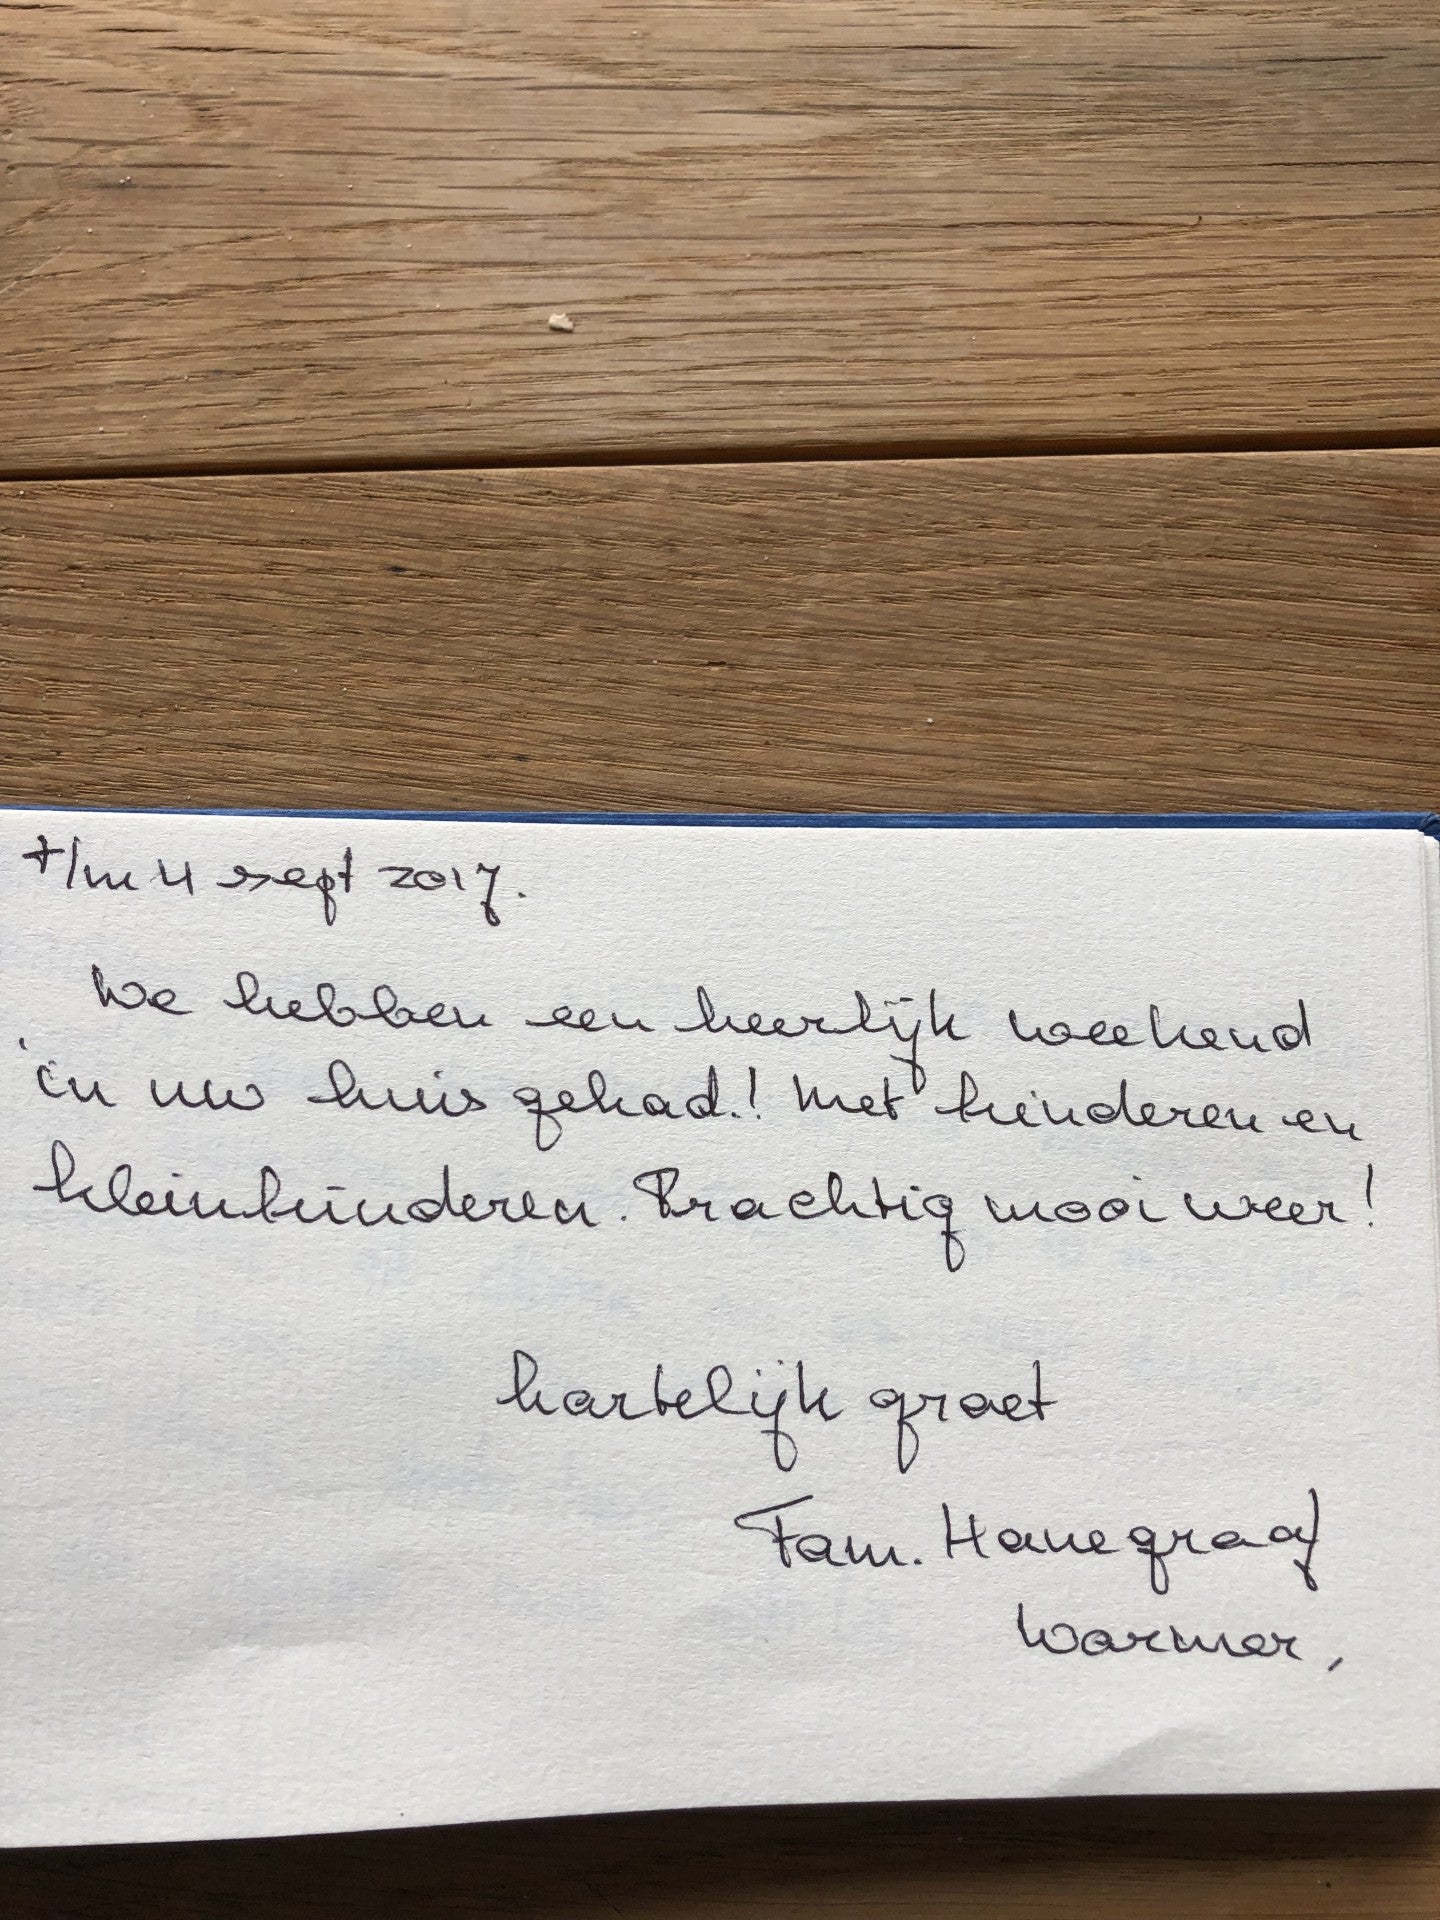 t/m 4 sept 2017.
We hebben een heerlijk weekend
in uw huis gehad.! Met kinderen en
kleinkinderen. Prachtig mooi weer!
hartelijk groet
Fam. Hanegraaf
Warmer,